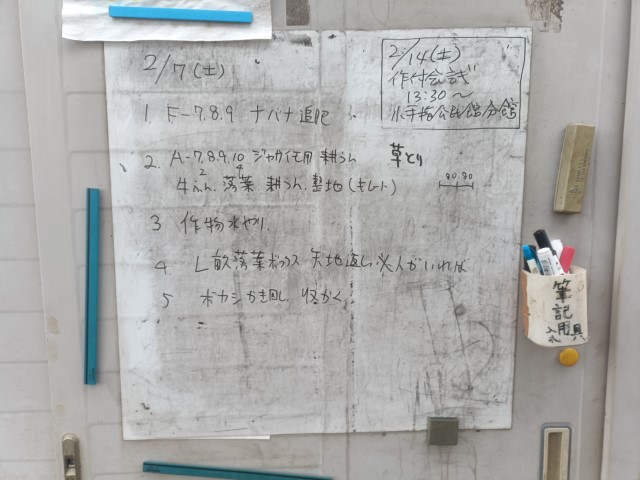 2/7(土)
1. F-7.8.9 ナバナ追肥
2. A-7.8.9.10 ジャガイモ用 耕うん
草とり
2 4
牛ふん. 落葉 耕うん. 整地
90 90
3 作物水やり
4 L畝落葉ボックス 天地返し 人がいれば
5 ボカシかき回し
2/14(土)
作付会議
13:30〜
小手指公民館分館
筆記用具
入れ